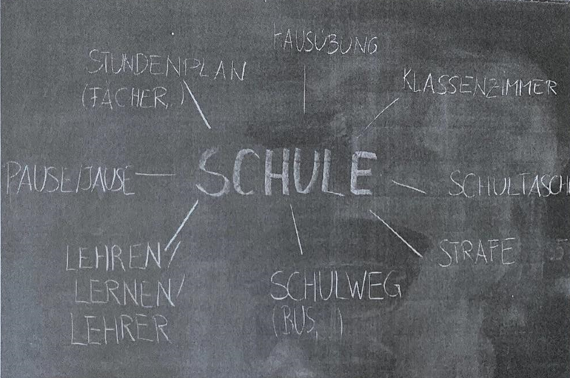 HAUSÜBUNG
STUNDENPLAN
(FÄCHER, )
KLASSENZIMMER
SCHULE
PAUSE/JAUSE
SCHULTASCH
STRAFE
LEHREN/
LERNEN/
LEHRER
SCHULWEG
(BUS, )